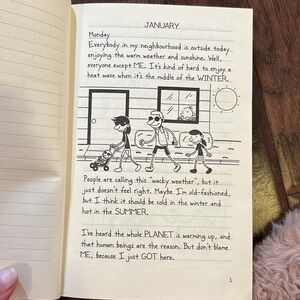 JANUARY
Monday
Everybody in my neighbourhood is outside today
enjoying the warm weather and sunshine. Well,
everyone except ME. It's kind of hard to enjoy a
heat wave when it's the middle of the WINTER.
People are calling this "wacky weather", but it
just doesn't feel right. Maybe I'm old-fashioned,
but I think it should be cold in the winter and
hot in the SUMMER.
I've heard the whole PLANET is warming up, and
that human beings are the reason. But don't blame
ME, because I just GOT here.
1